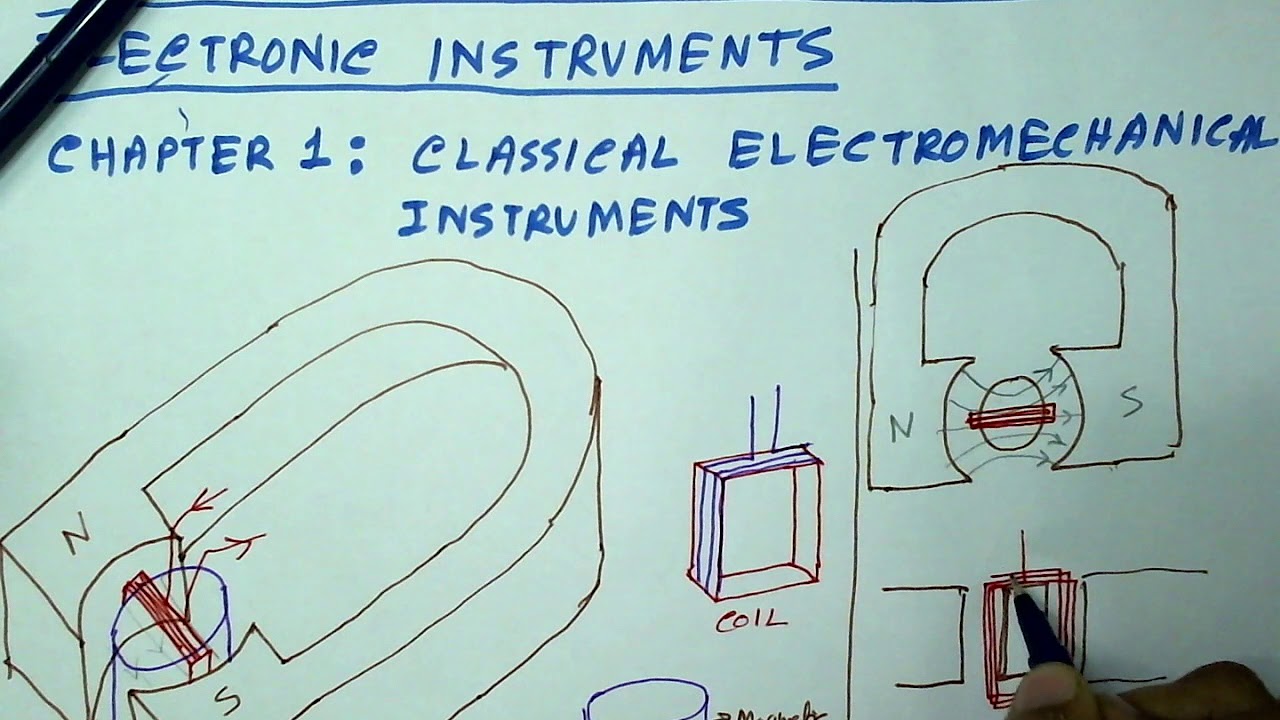 ELECTRONIC INSTRUMENTS
CHAPTER 1: CLASSICAL ELECTROMECHANICAL
INSTRUMENTS
N
S
N
S
COIL